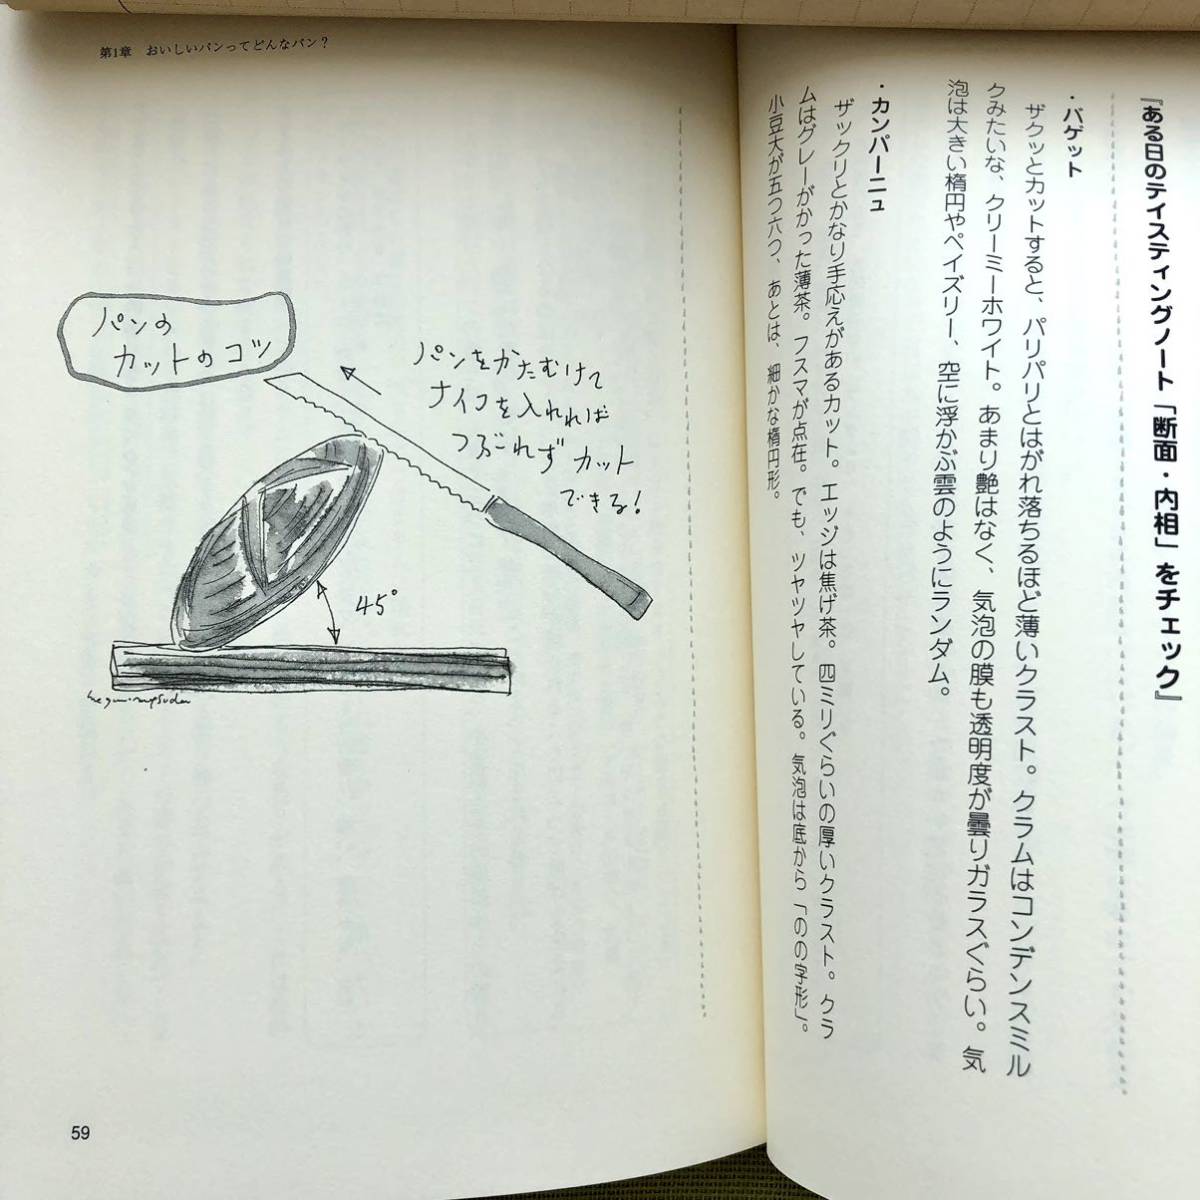 『ある日のテイスティングノート「断面・内相」をチェック』
・バゲット
ザクッとカットすると、パリパリとはがれ落ちるほど薄いクラスト。クラムはコンデンスミル
クみたいな、クリーミーホワイト。あまり艶はなく、気泡の膜も透明度が曇りガラスぐらい。気
泡は大きい楕円やペイズリー、空に浮かぶ雲のようにランダム。
・カンパーニュ
ザックリとかなり手応えがあるカット。エッジは焦げ茶。四ミリぐらいの厚いクラスト。クラ
ムはグレーがかった薄茶。フスマが点在。でも、ツヤツヤしている。気泡は底から「のの字形」。
小豆大が五つ六つ、あとは、細かな楕円形。
第1章 おいしいパンってどんなパン？
パンの
カットのコツ
パンをかたむけて
ナイフを入れれば
つぶれず カット
できる！
45°
59